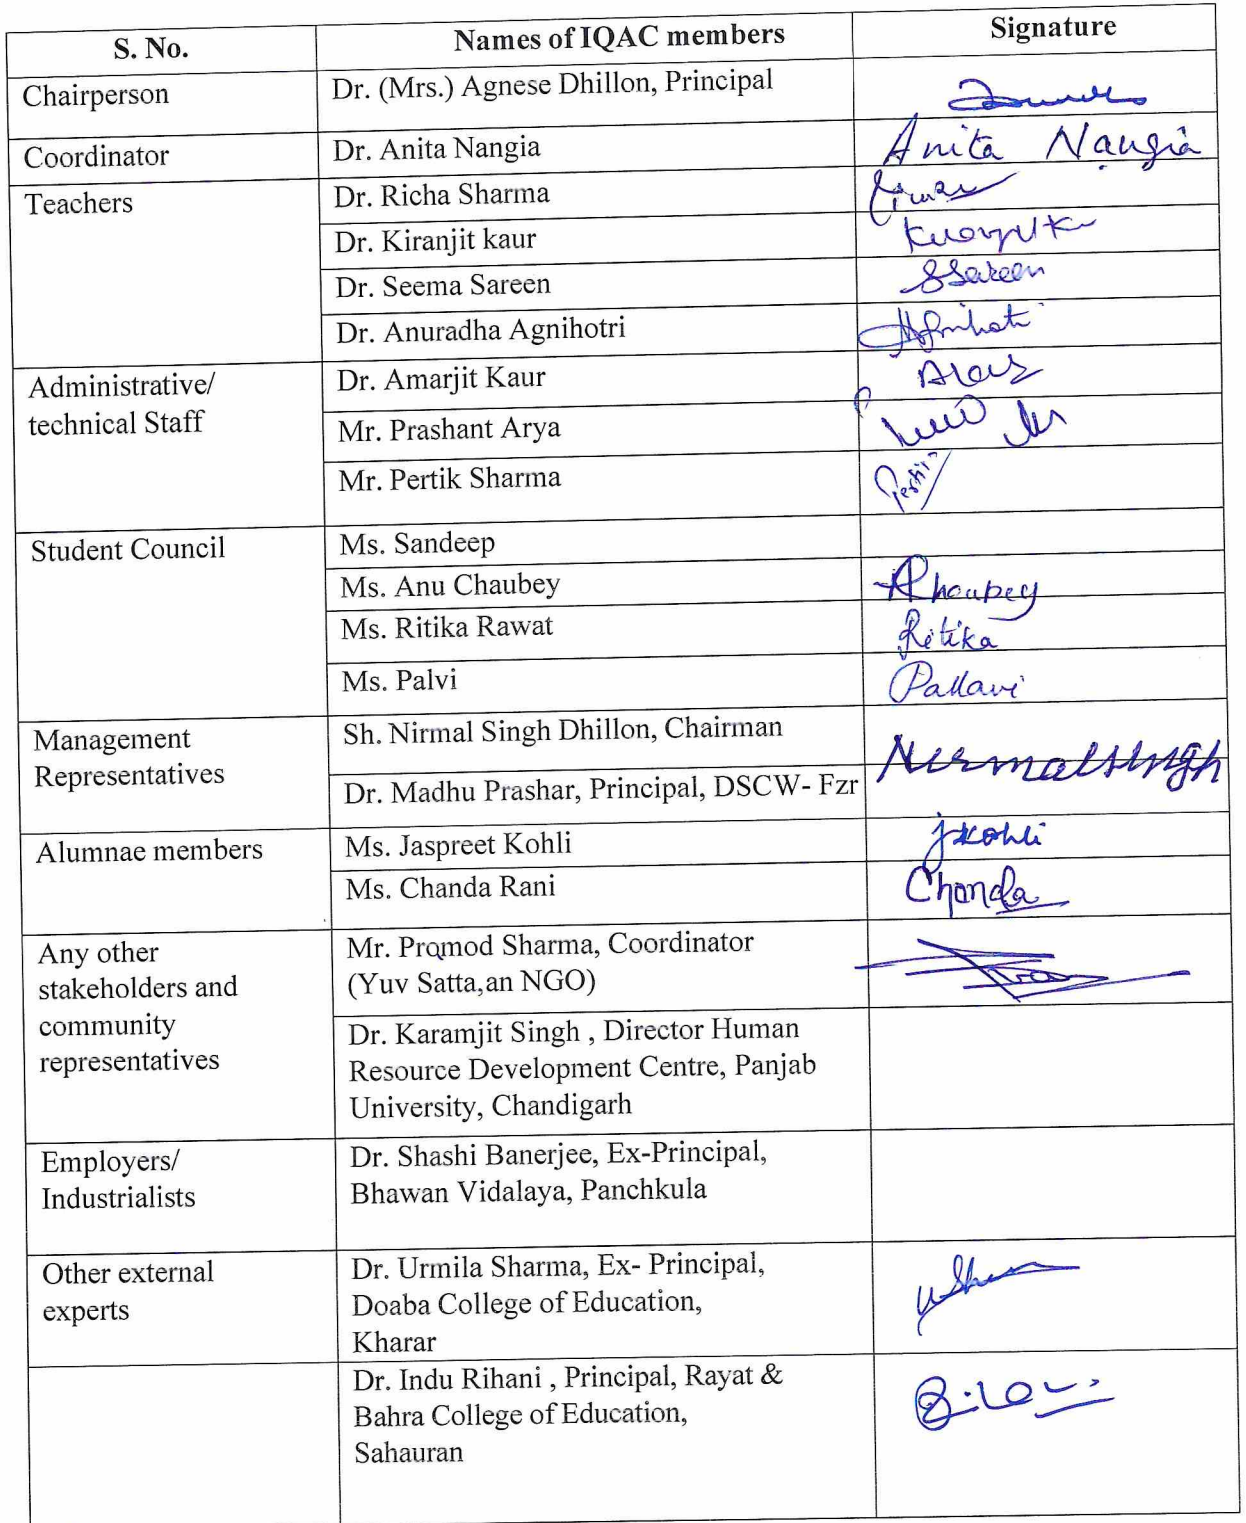 S. No. Names of IQAC members Signature
Chairperson Dr. (Mrs.) Agnese Dhillon, Principal
Coordinator Dr. Anita Nangia Anita Nangia
Teachers Dr. Richa Sharma
Dr. Kiranjit kaur
Dr. Seema Sareen SSareen
Dr. Anuradha Agnihotri
Administrative/
technical Staff
Dr. Amarjit Kaur
Mr. Prashant Arya
Mr. Pertik Sharma
Student Council Ms. Sandeep
Ms. Anu Chaubey
Ms. Ritika Rawat Ritika
Ms. Palvi Pallavi
Management
Representatives
Sh. Nirmal Singh Dhillon, Chairman Nirmalsingh
Dr. Madhu Prashar, Principal, DSCW- Fzr
Alumnae members Ms. Jaspreet Kohli jkohli
Ms. Chanda Rani Chanda
Any other
stakeholders and
community
representatives
Mr. Promod Sharma, Coordinator
(Yuv Satta,an NGO)
Dr. Karamjit Singh , Director Human
Resource Development Centre, Panjab
University, Chandigarh
Employers/
Industrialists
Dr. Shashi Banerjee, Ex-Principal,
Bhawan Vidalaya, Panchkula
Other external
experts
Dr. Urmila Sharma, Ex- Principal,
Doaba College of Education,
Kharar
Dr. Indu Rihani , Principal, Rayat &
Bahra College of Education,
Sahauran